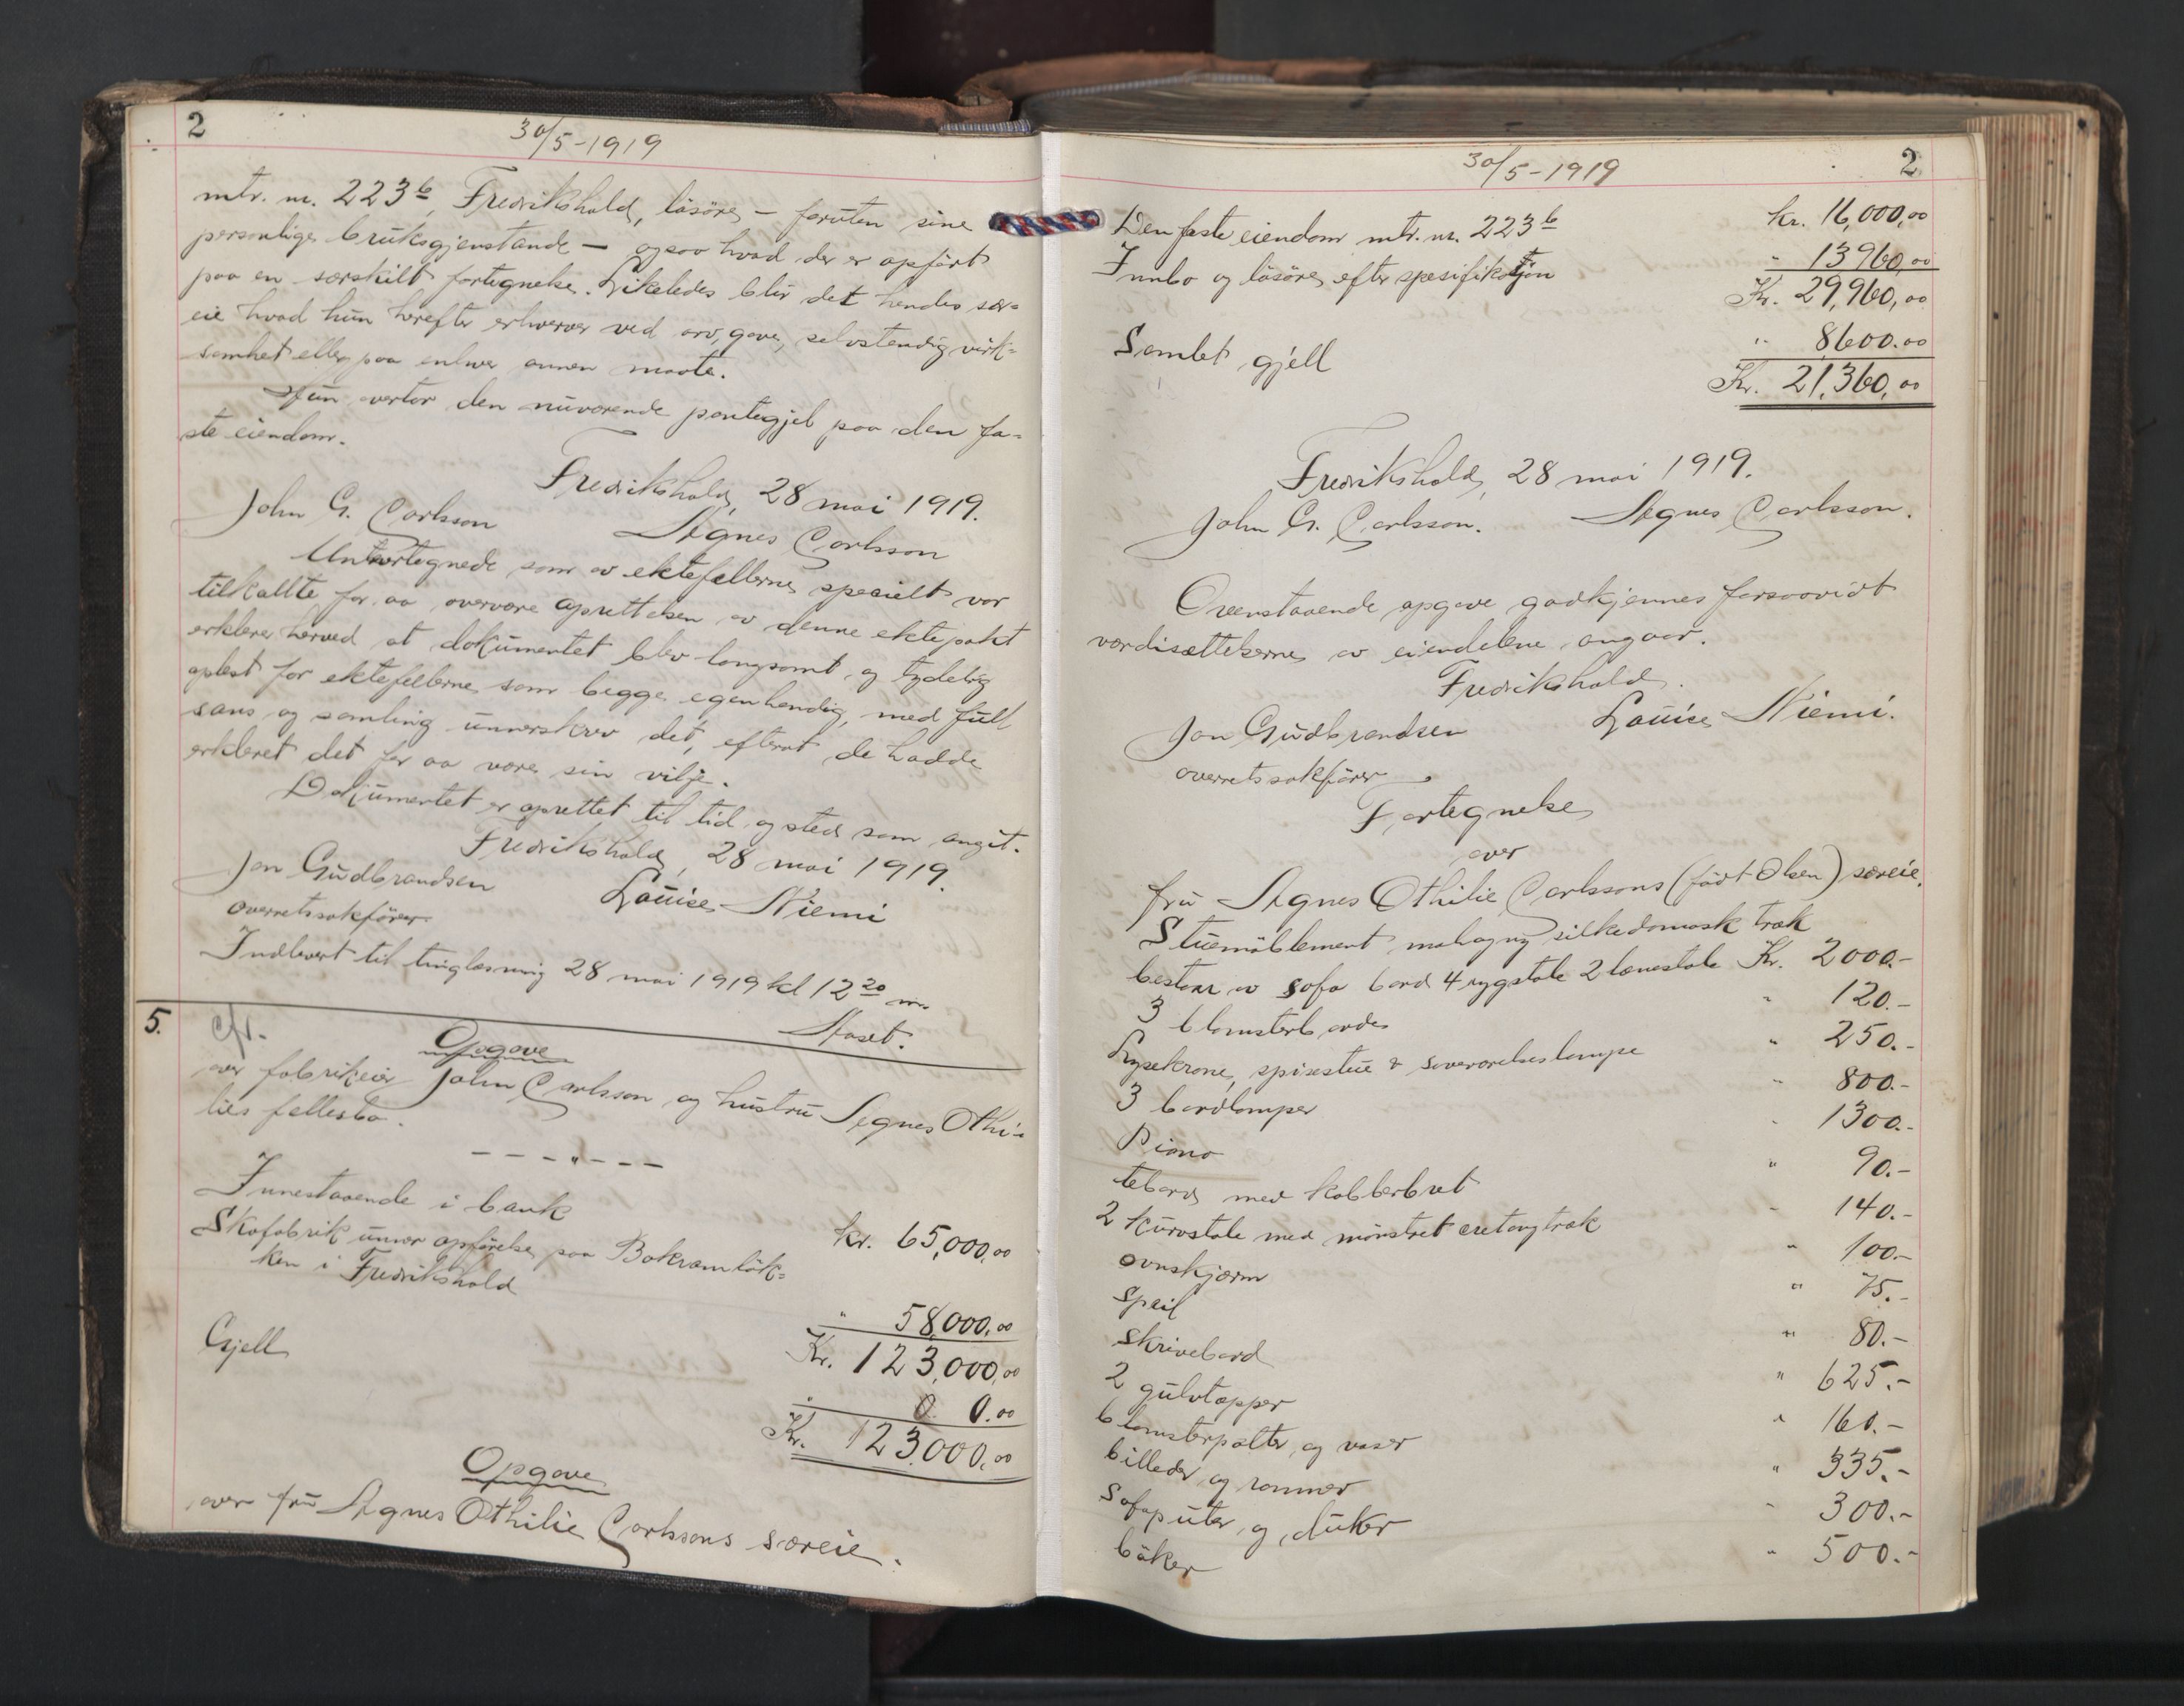 2
30/5-1919
mtr. nr. 223b, Fredrikshald, løsøre, - foruten sine
personlige bruksgjenstande - ogsaa hvad der er opført
paa en særskilt fortegnelse. Likeledes blir det hendes sær=
eie hvad hun herefter erhverver ved arv, gave, selvstendig virk=
somhet eller paa enhver annen maate.
Hun overtar den nuværende pantegjeld paa den fa=
ste eiendom.
Fredrikshald, 28 mai 1919.
John G. Carlsson Agnes Carlsson
Undertegnede som av ektefellerne specielt var
tilkallte for aa overvære oprettelsen av denne ektepakt
erklærer herved at dokumentet blev langsomt og tydelig
oplest for ektefellerne som begge egenhendig, med full
sans og samling unnerskrev det, efterat de hadde
erkleret det for aa være sin vilje.
Dokumentet er oprettet til tid og sted som angit.
Fredrikshald, 28 mai 1919.
Jon Gudbrandsen Louise Niemi
overretssakfører
Indlevert til tinglæsning 28 mai 1919 kl 12 20 m.
5. cfr.
Opgave
over fabrikeier John Carlsson og hustru Agnes Othi=
lies fellesbo.
- - - " - - -
Innestaaende i bank kr. 65,000,00
Skofabrik unner opførelse paa Bakramløk=
ken i Fredrikshald " 58,000,00
Kr. 123,000,00
Gjell " 0.00
Kr. 123.000,00
Opgave
over fru Agnes Othilie Carlssons særeie.
30/5-1919
2
Den faste eiendom mtr. nr. 223b kr. 16,000,00
Innbo og løsøre efter spesifikasjon " 13960,00
Kr. 29,960,00
Samlet gjell " 8600.00
Kr. 21,360,00
Fredrikshald, 28 mai 1919.
John G. Carlsson. Agnes Carlsson.
Ovenstaaende opgave godkjennes forsaavidt
værdisættelserne av eiendelene angaar.
Fredrikshald.
Jon Gudbrandsen Louise Niemi.
overretssakfører
Fortegnelse
over
fru Agnes Othilie Carlssons (født Olsen) særeie.
Stuemøblement mahogny silkedamask træk
bestaar av sofa bord 4 rygstole 2 lænestole Kr. 2000.-
3 blomsterborde " 120.-
Lysekrone, spisestue & soveværelseslampe " 250.-
3 bordlamper " 800.-
Piano " 1300.-
tebord med kobberbret " 90.-
2 kurvstole med mønstret cretongtræk " 140.-
ovnskjærm " 100.-
speil " 75.-
skrivebord " 80.-
2 gulvtæpper " 625.-
blomsterpotter og vaser " 160.-
billeder og rammer " 335.-
sofaputer og duker " 300.-
bøker " 500.-